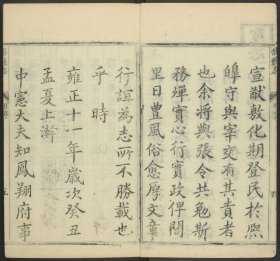 宣猷敷化期登民於熙
皞守與宰交有其責者
也余將與張令共勉斯
務殫實心行實政俾閭
里日豊風俗愈厚文章
行誼為志所不勝載也
乎時
雍正十一年歲次癸丑
孟夏上澣
中憲大夫知鳳翔府事